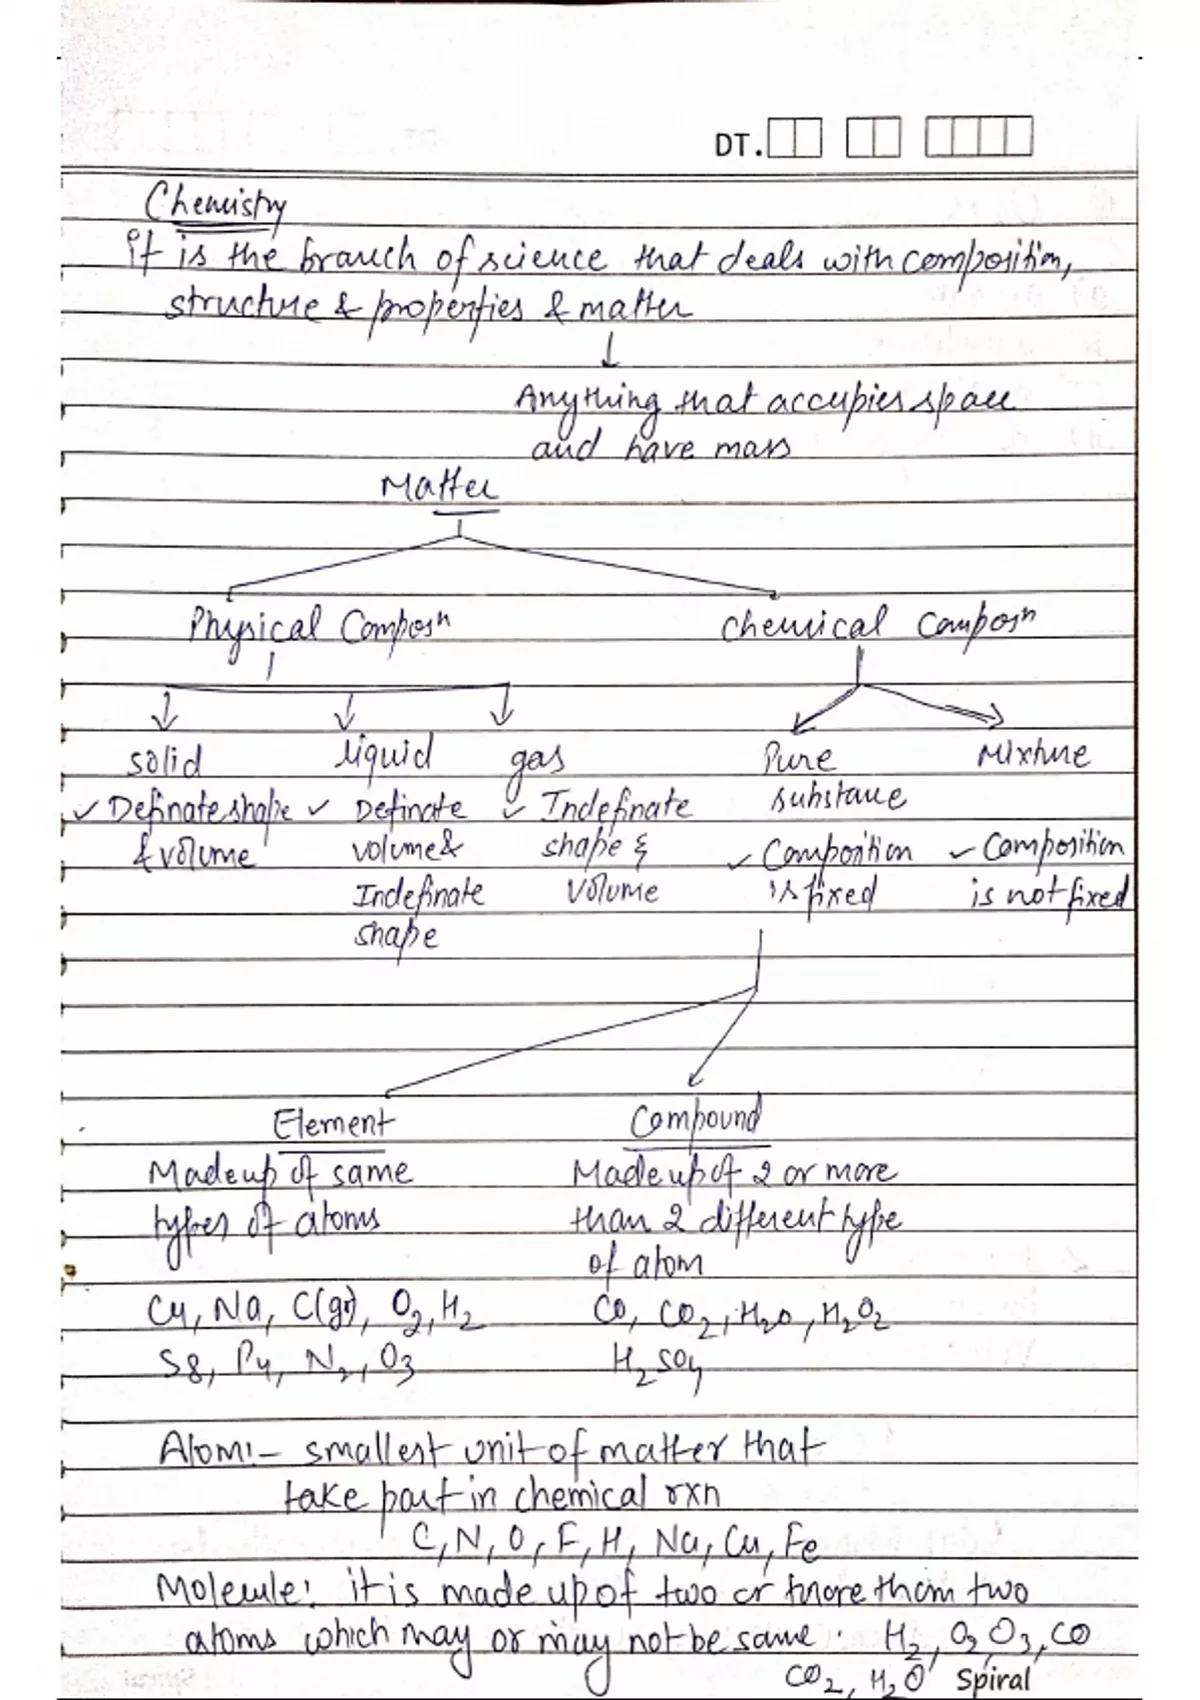 DT.
Chemistry
it is the branch of science that deals with composition,
structure & properties & matter
Anything that accupies space
and have mass
Matter
Physical Composn chemical Composn
solid liquid gas Pure Mixture
✓ Definate shape ✓ Definate ✓ Indefinate substance
& volume volume & shape & ✓ Composition ✓ Composition
Indefinate volume is fixed is not fixed
shape
Element Compound
Made up of same Made up of 2 or more
types of atoms than 2 different type
of atom
Cu, Na, C(gr), O2, H2 CO, CO2, H2O, H2O2
S8, P4, N2, O3 H2SO4
Atom:- smallest unit of matter that
take part in chemical rxn
C, N, O, F, H, Na, Cu, Fe
Molecule: it is made up of two or more than two
atoms which may or may not be same. H2, O2 O3, CO
CO2, H2O Spiral